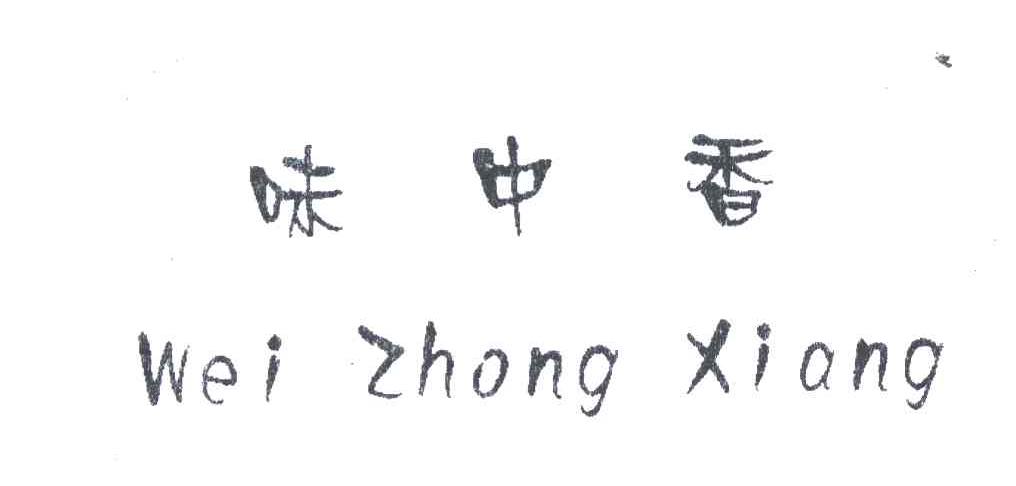 味中香
Wei Zhong Xiang